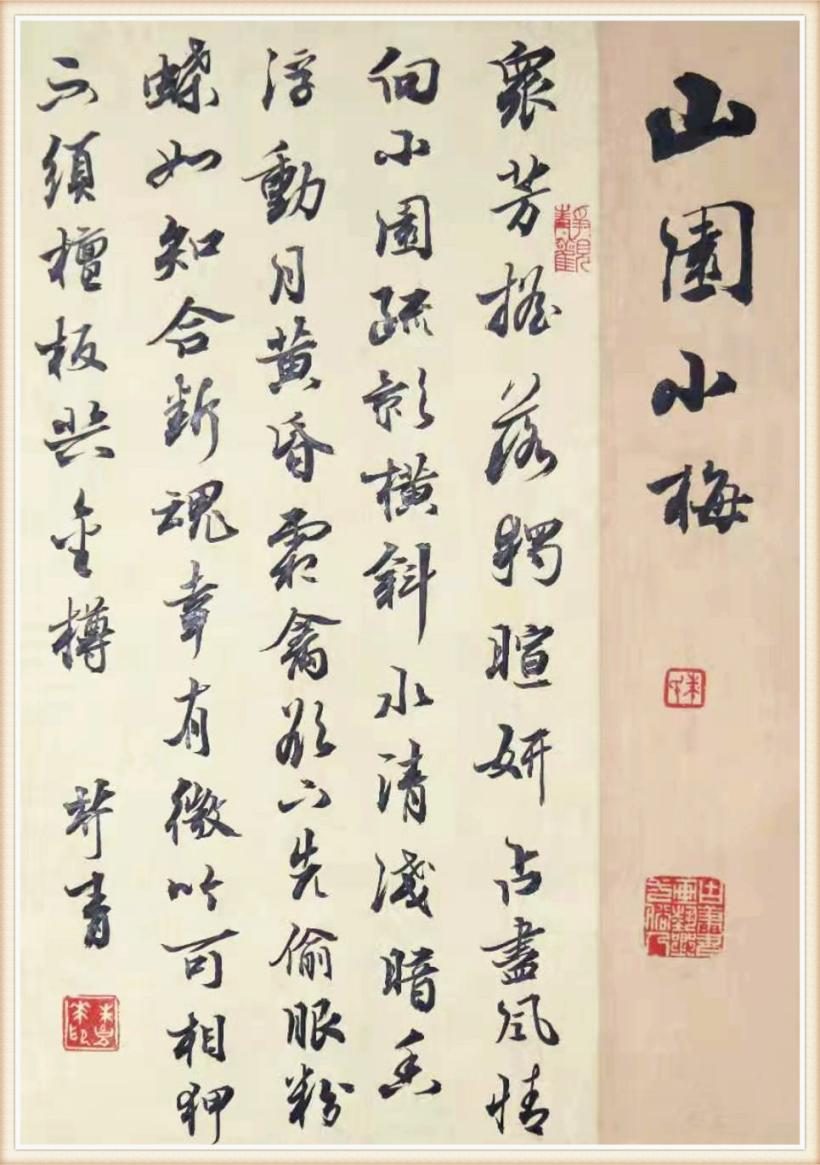 山園小梅
衆芳搖落獨暄妍占盡風情
向小園疏影橫斜水清淺暗香
浮動月黃昏霜禽欲下先偷眼粉
蝶如知合斷魂幸有微吟可相狎
不須檀板共金樽